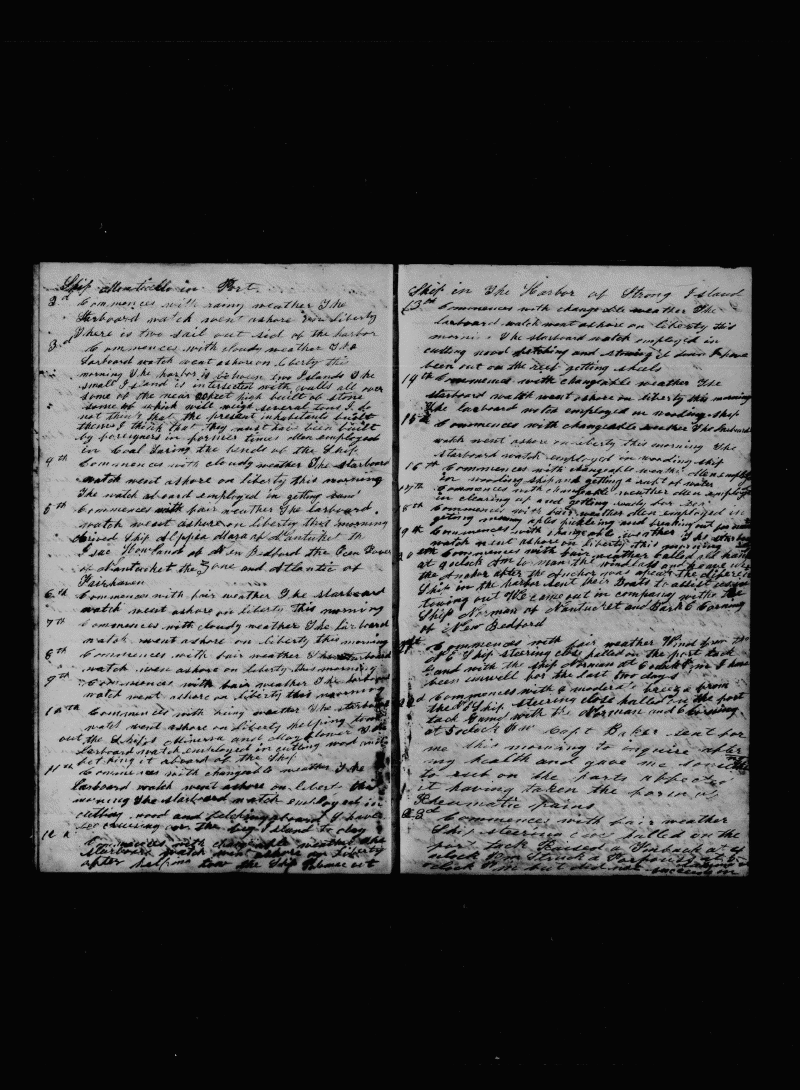 Ship Monticello in Port
2d Commences with rainy weather The
Starboard watch went ashore on liberty
There is two sail out sid of the harbor
3d Commences with cloudy weather The
Larboard watch went ashore on liberty this
morning The harbor is between two Islands The
small Island is intersected with walls all over
some of the near feet high built of stone
some of which will weigh several tons I do
not think that the present inhabitants built
them I think that they must have been built
by foreigners in former times Men employed
in Coal Taring the bends of the Ship
4th Commences with cloudy weather The starboard
watch went ashore on liberty this morning
The watch aboard employed in getting
5th Commences with fair weather The Larboard
watch went ashore on liberty that morning
Arived Ship Alpha Mara of Nantucket the
Isac Howland of New Bedford the
of Nantucket the Zone and Atlantic of
Fairhaven
6th Commences with fair weather The starboard
watch went ashore on liberty this morning
7th Commences with cloudy weather The larboard
watch went ashore on liberty this morning
8th Commences with fair weather The starboard
watch went ashore on liberty this morning
9th Commences with fair weather The larboard
watch went ashore on liberty this morning
10th Commences with weather The starboard
watch went ashore on liberty helping tow
out the Ships Minerva and The
Larboard watch employed in cutting wood and
fetching it aboard of the Ship
11th Commences with changeable weather The
Larboard watch went ashore on liberty this
morning The starboard watch employed in
cutting wood and fetching aboard I have
been cruising on the big Island to day
12th Commences with changeable weather The
Starboard watch went ashore on liberty
after helping tow the Ship out
Ship in The Harbor of Strong Island
13th Commences with changable weather The
Larboard watch went ashore on liberty this
morning The starboard watch employed in
cutting wood fetching and stowing it down I have
been out on the reef getting shells
14th Commences with changeable weather The
starboard watch went ashore on liberty this morning
The larboard watch employed in wooding ship
15th Commences with changeable weather The larboard
watch went ashore on liberty this morning The
starboard watch employed in wooding ship
16th Commences with changeable weather Men employed
in wooding ship and getting a raft of water
17th Commences with changeable weather Men employed
in clearing up and getting ready for sea
18th Commences with fair weather Men employed in
getting and breaking out for
19th Commences with changeable weather The starboard
watch went ashore on liberty this morning
20th Commences with fair weather Called all hands
at 4 oclock Am to man the windlass and heave up
the Anchor after the Anchor was apeak the diferent
Ship in the harbor sent their Boats to assist us in
towing out We came out in company with the
Ship Norman of Nantucket and Bark C Corning
of New Bedford
Commences with fair weather Wind from the
Ship steering close halled on the port tack
Gamd with the ship Norman at 6 oclock Pm I have
been unwell for the last two days
22d Commences with a moderate breeze from
the Ship steering close halled on the port
tack Gamd with the Norman and C Corning
at 5 oclock Pm Capt Baker sent for
me this morning to enquire after
my health and gave me some
to rub on the parts affected
it having taken the form of
Rheumatic pains
23d Commences with fair weather
Ship steering close halled on the
port tack Raised a Finback at
oclock Pm Struck a Porpoise at
oclock Pm but did not succeed in